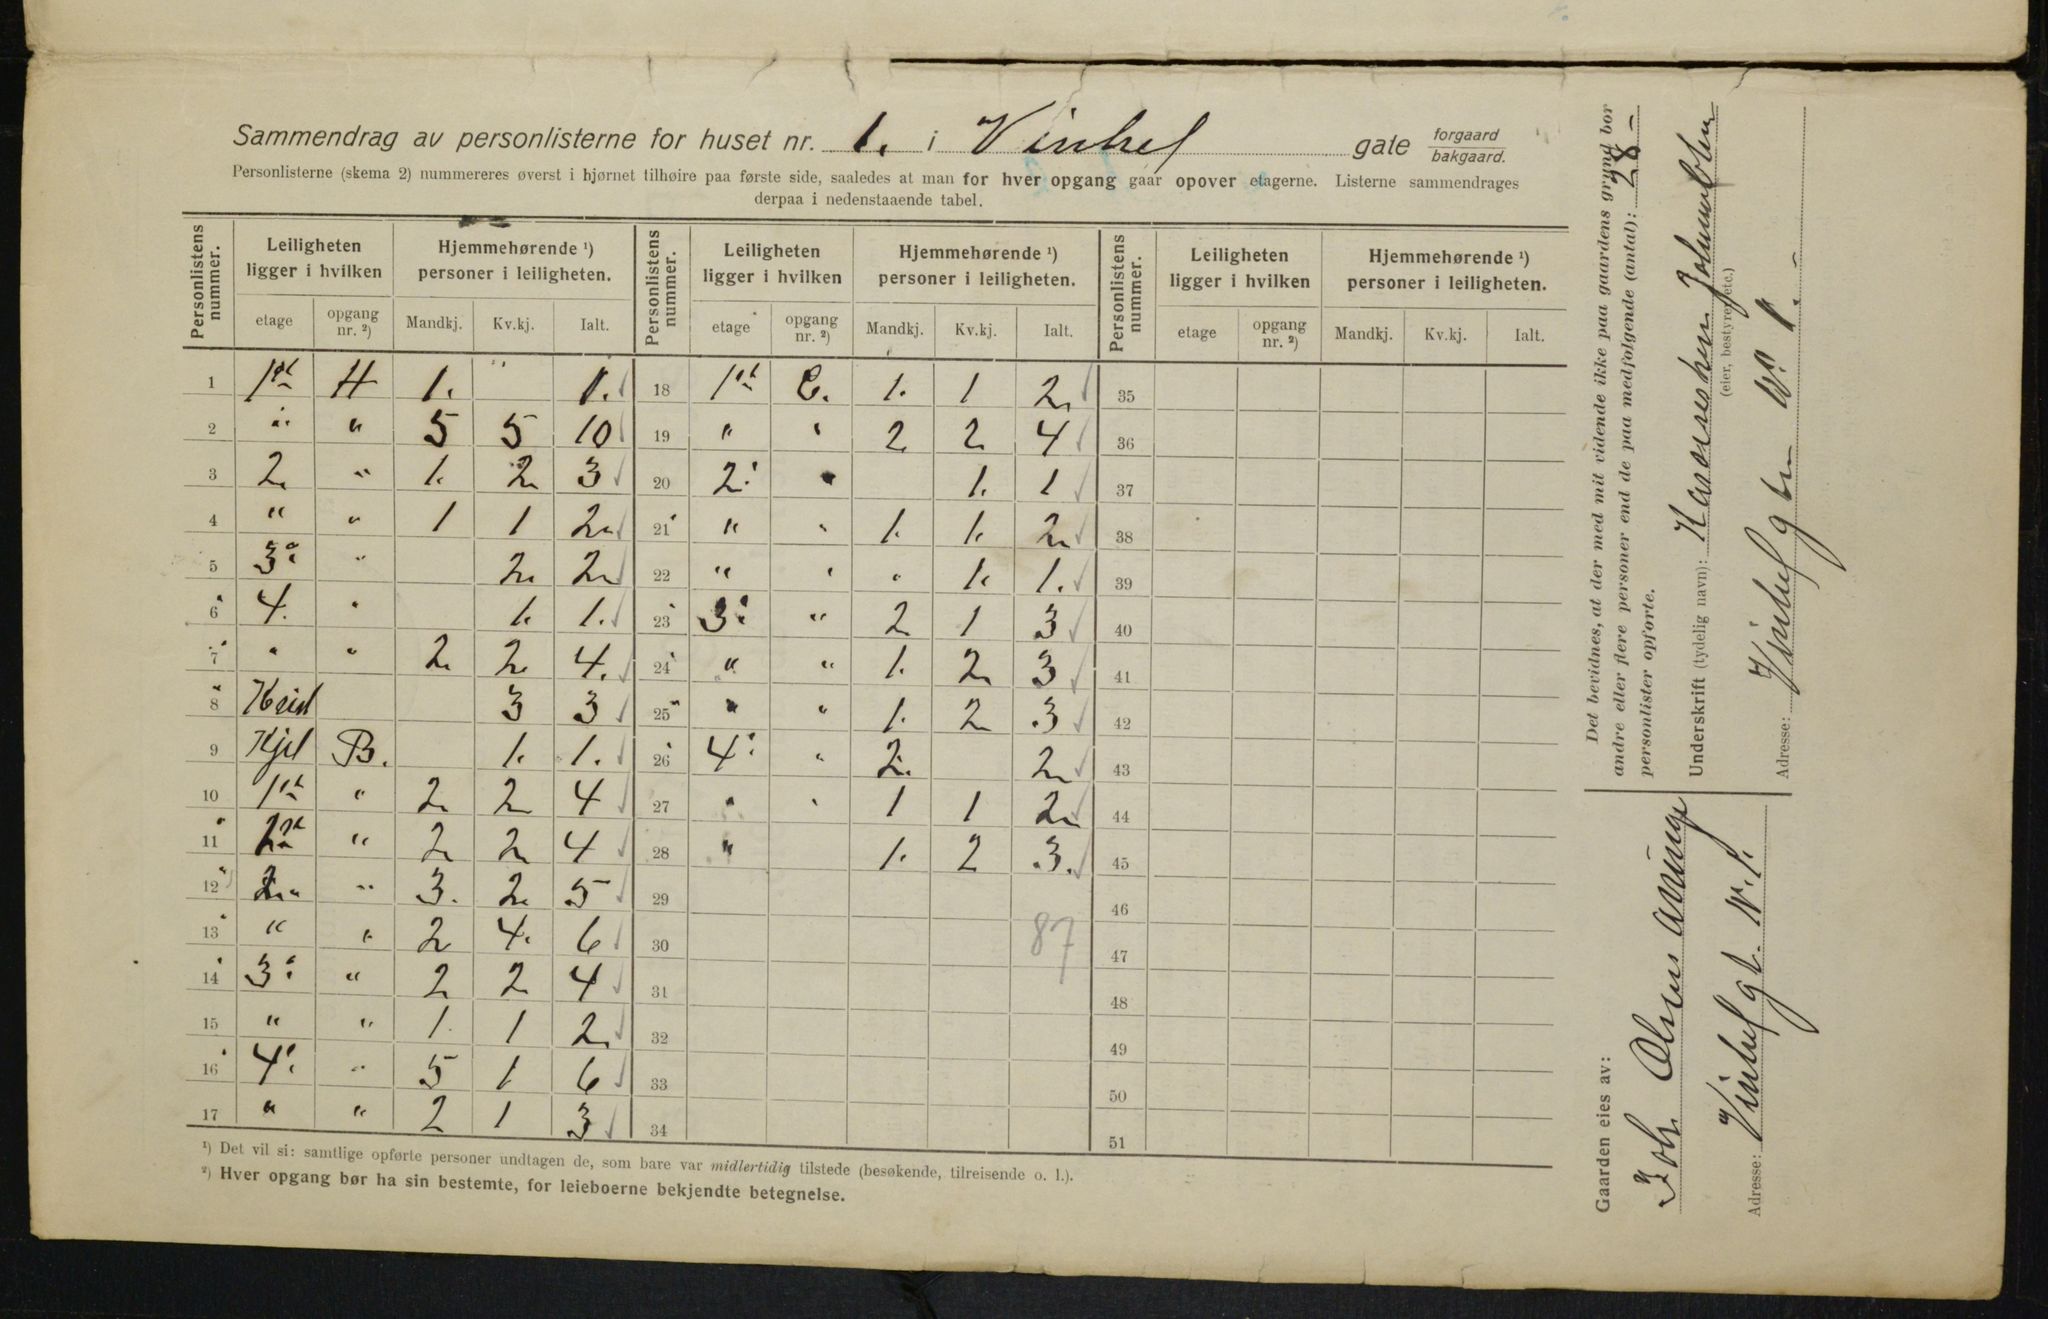 Sammendrag av personlisterne for huset nr. 1. i Vinkel gate forgaard bakgaard.
Personlisterne (skema 2) nummereres øverst i hjørnet tilhøire paa første side, saaledes at man for hver opgang gaar opover etagerne. Listerne sammendrages
derpaa i nedenstaaende tabel.
Personlistens nummer. Leiligheten ligger i hvilken Hjemmehørende ¹) personer i leiligheten. Personlistens nummer. Leiligheten ligger i hvilken Hjemmehørende ¹) personer i leiligheten. Personlistens nummer. Leiligheten ligger i hvilken Hjemmehørende ¹) personer i leiligheten.
etage opgang nr. ²) Mandkj. Kv.kj. Ialt. etage opgang nr. ²) Mandkj. Kv.kj. Ialt. etage opgang nr. ²) Mandkj. Kv.kj. Ialt.
1 1st H 1. " 1. 18 1st C. 1. 1 2 35
2 " " 5 5 10 19 " " 2 2 4 36
3 2. " 1. 2 3 20 2. " 1. 1 37
4 " " 1 1 2 21 " " 1. 1. 2 38
5 3. " 2 2 22 " " " 1. 1. 39
6 4. " 1. 1. 23 3. " 2 1 3 40
7 " " 2 2 4. 24 " " 1. 2 3 41
8 Kvist 3 3 25 " " 1. 2 3 42
9 Kjel B. 1. 1. 26 4. " 2. 2 43
10 1st " 2 2 4 27 " " 1 1 2 44
11 " 2 2 4 28 " 1. 2 3. 45
12 2. " 3. 2 5 29 46
13 " " 2 4. 6 30 87 47
14 3. " 2 2 4 31 48
15 " " 1. 1 2 32 49
16 4. " 5 1 6 33 50
17 " " 2 1 3 34 51
¹) Det vil si: samtlige opførte personer undtagen de, som bare var midlertidig tilstede (besøkende, tilreisende o. l.).
²) Hver opgang bør ha sin bestemte, for leieboerne bekjendte betegnelse.
Det bevidnes, at der med mit vidende ikke paa gaardens grund bor
andre eller flere personer end de paa medfølgende (antal): 28 -
personlister opførte.
Underskrift (tydelig navn):
(eier, bestyrer etc.)
Adresse: Vinkelgten No 1. -
Gaarden eies av:
Joh. Olsens arvinge
Adresse: Vinkelgt. N. 1.